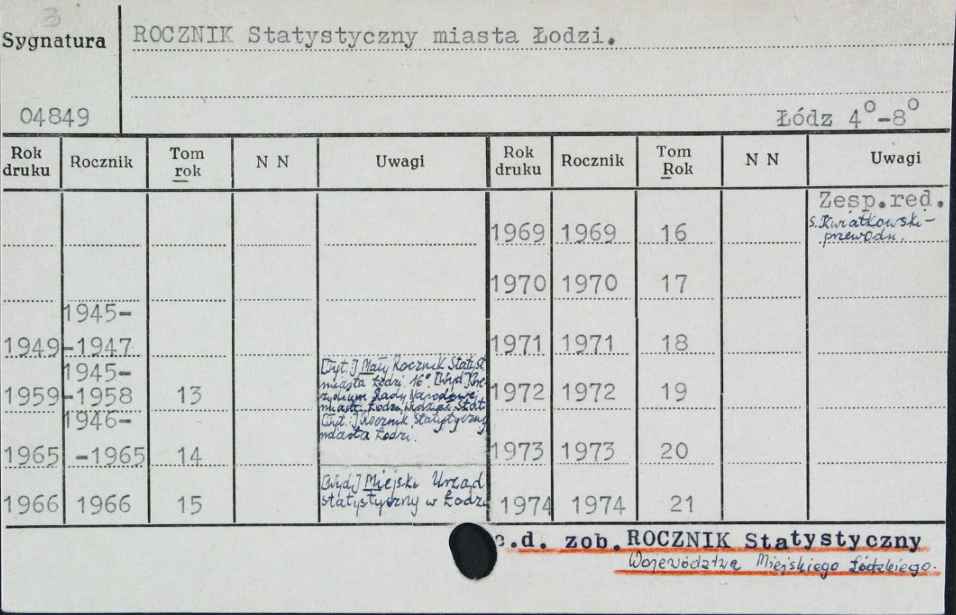 3
Sygnatura
ROCZNIK Statystyczny miasta Łodzi.
04849
Łódz 4°-8°
Rok druku Rocznik Tom rok N N Uwagi Rok druku Rocznik Tom Rok N N Uwagi
Zesp.red.
1969 1969 16 S. Kwiatkowski -
przewodn.
1970 1970 17
1945-
1949 -1947 1971 1971 18
1945-
[Tyt.] Mały Rocznik Statyst.
miasta Łodzi 16°. [Wyd.] Pre-
1959 -1958 13 zydium Rady Narodowej 1972 1972 19
miasta Łodzi, Wydział Stat.
1946-
[Tyt.] Rocznik Statystyczny
miasta Łodzi.
1965 -1965 14 1973 1973 20
[Wyd.] Miejski Urząd
1966 1966 15 statystyczny w Łodzi 1974 1974 21
c.d. zob. ROCZNIK Statystyczny
Województwa Miejskiego Łódzkiego.